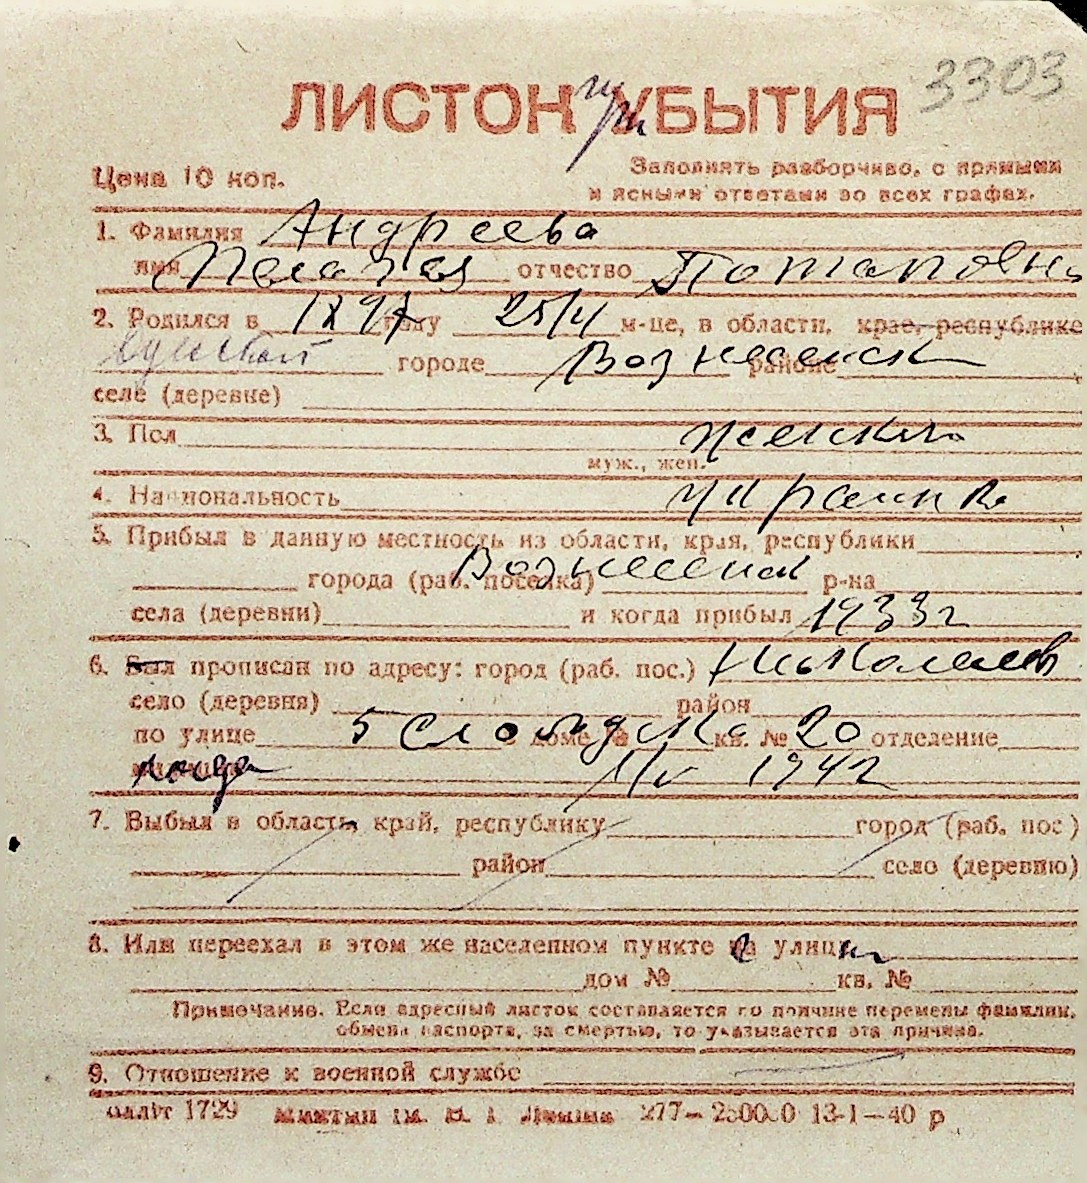 3303
ЛИСТОК при УБЫТИЯ
Цена 10 коп.
Заполнять разборчиво, с прямыми
и ясными ответами во всех графах.
1. Фамилия Андреева
имя Пелагея отчество Потаповна
2. Родился в 1897 году 25/V м-це, в области, крае, республике
городе Вознесенск районе
селе (деревне)
3. Пол женский
муж., жен.
4. Национальность украинка
5. Прибыл в данную местность из области, края, республики
города (раб. поселка) Вознесенск р-на
села (деревни) и когда прибыл 1933 г
6. Был прописан по адресу: город (раб. пос.) Николаев
село (деревня) район
по улице 5 Слободска в доме № кв. № 20 отделение
когда 1/V 1942
7. Выбыл в область, край, республику город (раб. пос)
район село (деревню)
8. Или переехал в этом же населенном пункте на улицу
дом № кв. №
Примечание. Если адресный листок составляется по причине перемены фамилии,
обмена паспорта, за смертью, то указывается эта причина.
9. Отношение к военной службе
1729 277— 250000 13-1—40 р